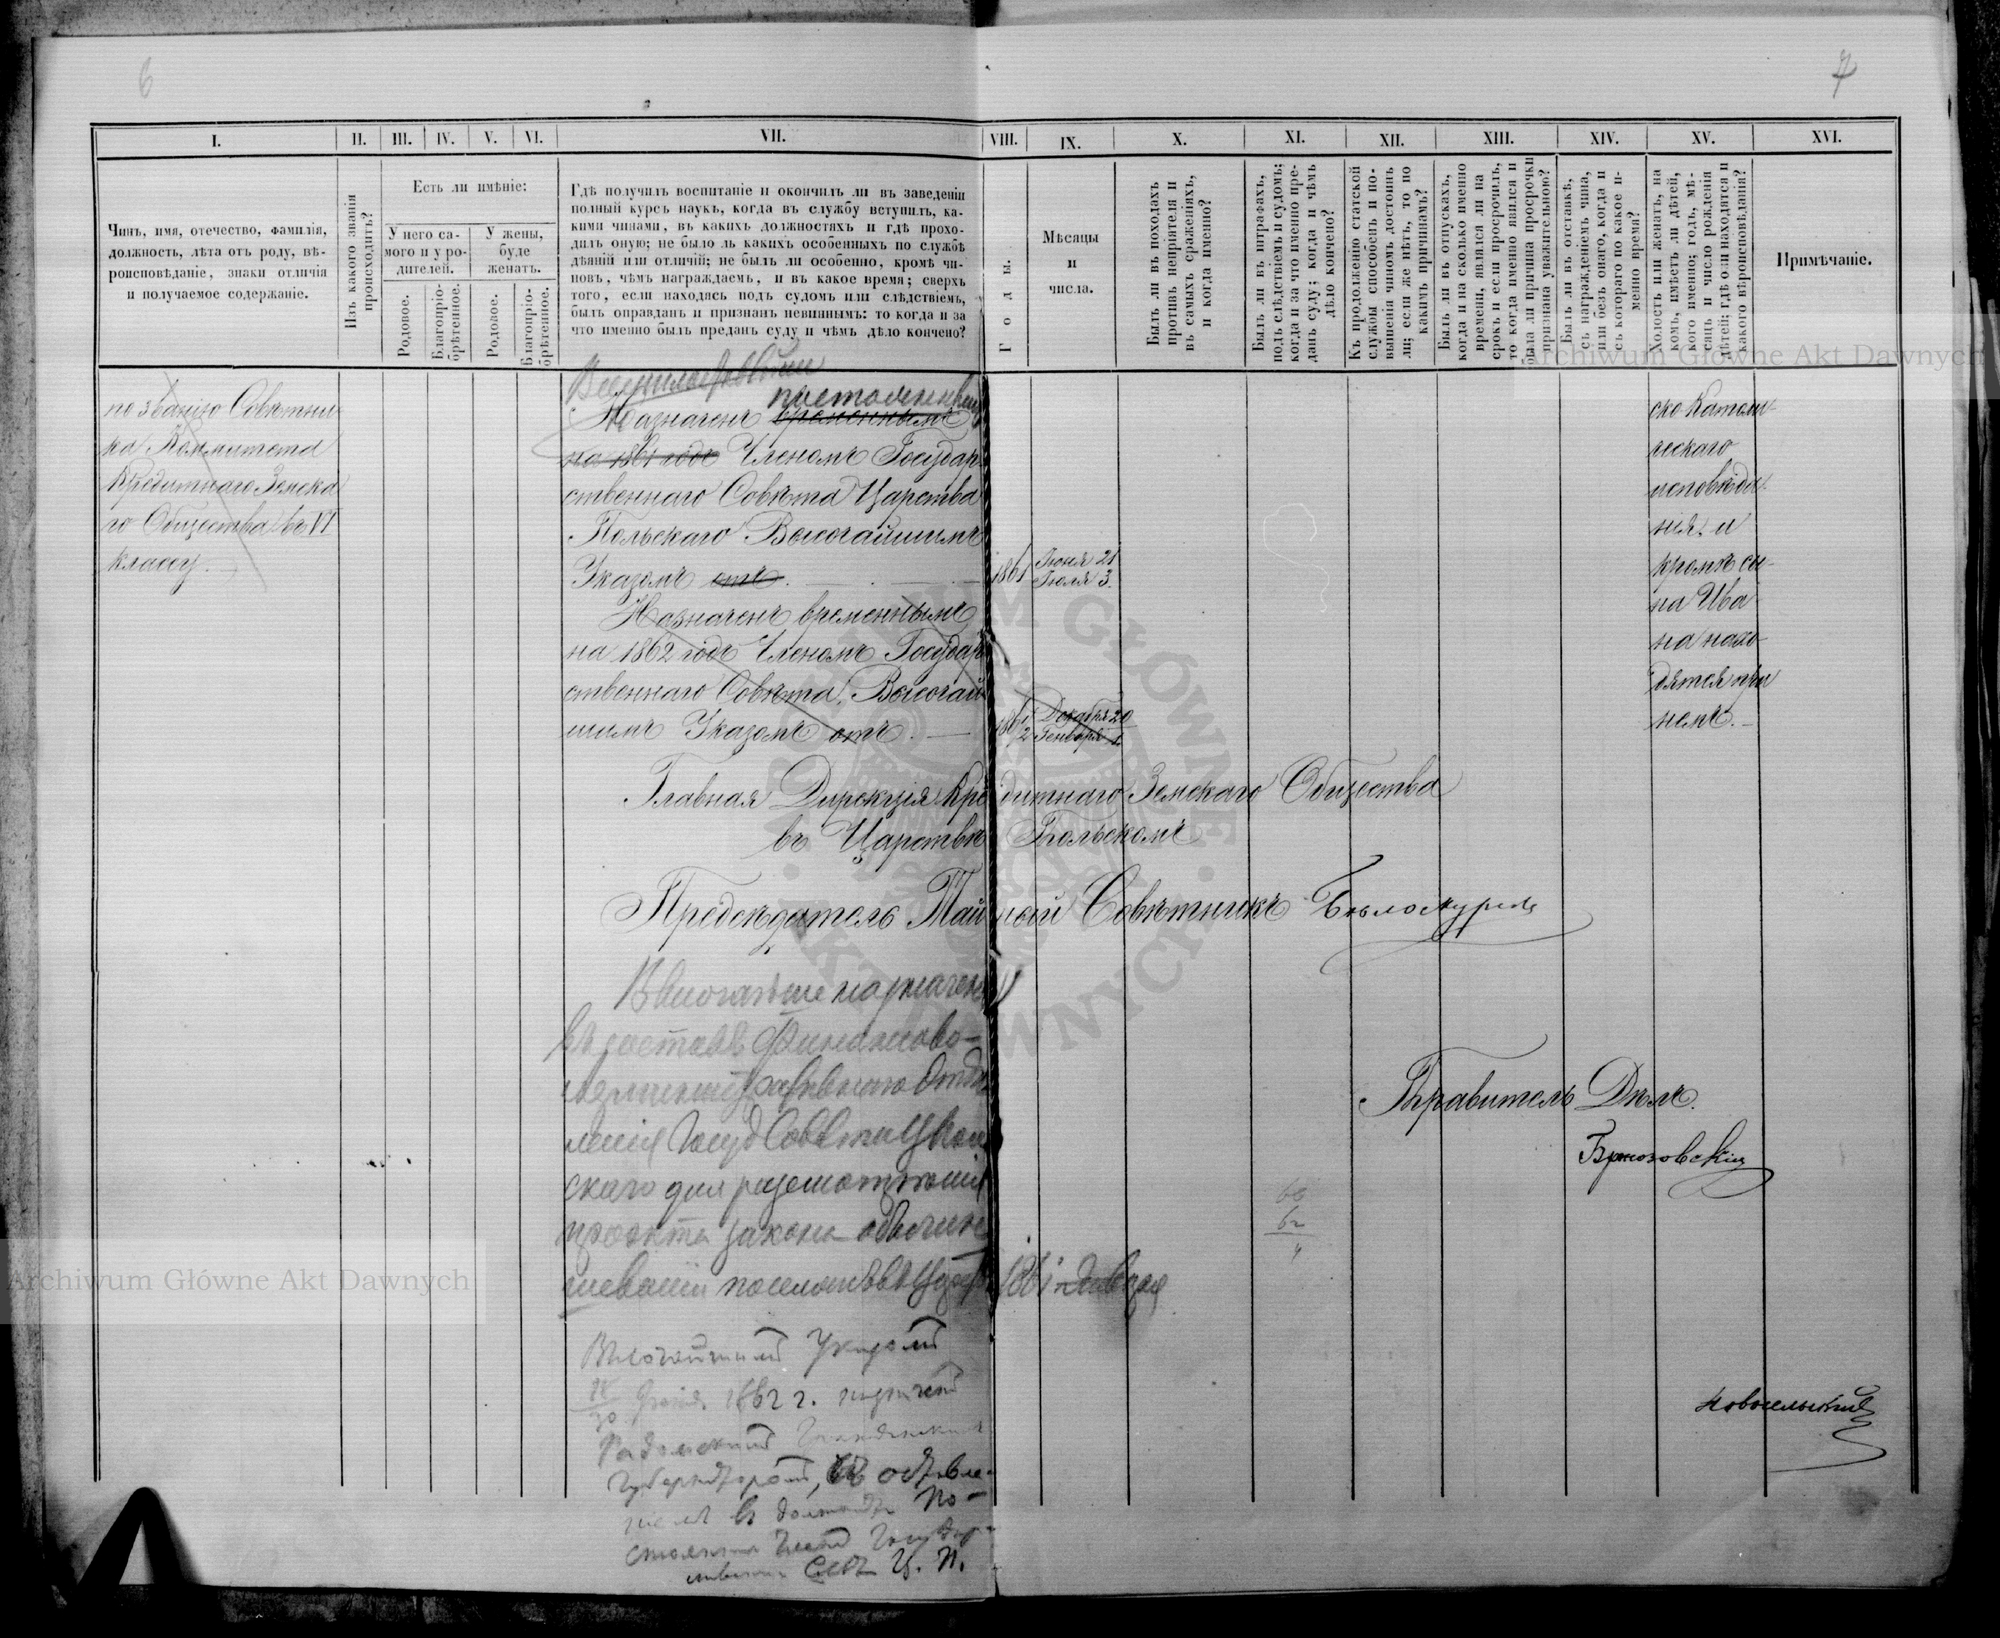 6
7
I.
II.
III.
IV.
V.
VI.
VII.
VIII.
IX.
X.
XI.
XII.
XIII.
XIV.
XV.
XVI.
Чинъ, имя, отечество, фамилія,
должность, лѣта отъ роду, вѣ-
роисповѣданіе, знаки отличія
и получаемое содержаніе.
Изъ какого званія
происходитъ?
Есть ли имѣніе:
У него са-
мого и у ро-
дителей.
У жены,
буде
женатъ.
Родовое.
Благопріо-
брѣтенное.
Родовое.
Благопріо-
брѣтенное.
Гдѣ получилъ воспитаніе и окончилъ ли въ заведеніи
полный курсъ наукъ, когда въ службу вступилъ, ка-
кими чинами, въ какихъ должностяхъ и гдѣ прохо-
дилъ оную; не было ль какихъ особенныхъ по службѣ
дѣяній или отличій; не былъ ли особенно, кромѣ чи-
новъ, чѣмъ награждаемъ, и въ какое время; сверхъ
того, если находясь подъ судомъ или слѣдствіемъ,
былъ оправданъ и признанъ невиннымъ: то когда и за
что именно былъ преданъ суду и чѣмъ дѣло кончено?
Годы.
Мѣсяцы
и
числа.
Былъ ли въ походахъ
противъ непріятеля и
въ самыхъ сраженіяхъ,
и когда именно?
Былъ ли въ штрафахъ,
подъ слѣдствіемъ и судомъ;
когда и за что именно пре-
данъ суду; когда и чѣмъ
дѣло кончено?
Къ продолженію статской
службы способенъ и по-
вышенія чиномъ достоинъ
ли; если же нѣтъ, то по
какимъ причинамъ?
Былъ ли въ отпускахъ,
когда и на сколько именно
времени, явился ли на
срокъ и если просрочилъ,
то когда именно явился и
была ли причина просрочки
признана уважительною?
Былъ ли въ отставкѣ,
съ награжденіемъ чина,
или безъ онаго, когда и
съ котораго по какое и-
менно время?
Холостъ или женатъ, на
комъ, имѣетъ ли дѣтей,
кого именно; годъ, мѣ-
сяцъ и число рожденія
дѣтей; гдѣ они находятся и
какого вѣроисповѣданія?
Примѣчаніе.
по званію Совѣтни-
ка Коммитета
Кредитнаго Земска
го Общества въ VI
классу.
Назначенъ временнымъ
на 1861 годъ Членомъ Государ-
ственнаго Совѣта Царства
Польскаго Высочайшимъ
Указомъ отъ.
1861
Іюня 21
Іюля 3.
Назначенъ временнымъ
на 1862 годъ Членомъ Государ
ственнаго Совѣта, Высочай
шимъ Указомъ отъ.
186 1/2
Декабря 20
Генваря 1
ско Католи-
ческаго
исповѣда-
нія, и
кромѣ сы-
на Ива-
на нахо-
дятся при
немъ.
Главная Дирекція Кредитнаго Земскаго Общества
въ Царствѣ Польскомъ
Предсѣдатель Тайный Совѣтникъ
Высочайше назначенъ
въ составъ Финансово-
Отдѣ
ленія Госуд Совѣта Ц Поль
скаго для разсмотрѣнія
проекта закона
1861
Правитель Дѣлъ.
Высочайшимъ Указомъ
1862 г. назначенъ
Радомскимъ Гражданскимъ
Губернаторомъ, съ оставле-
въ должности По-
Ц. П.
Archiwum Główne Akt Dawnych
Archiwum Główne Akt Dawnych